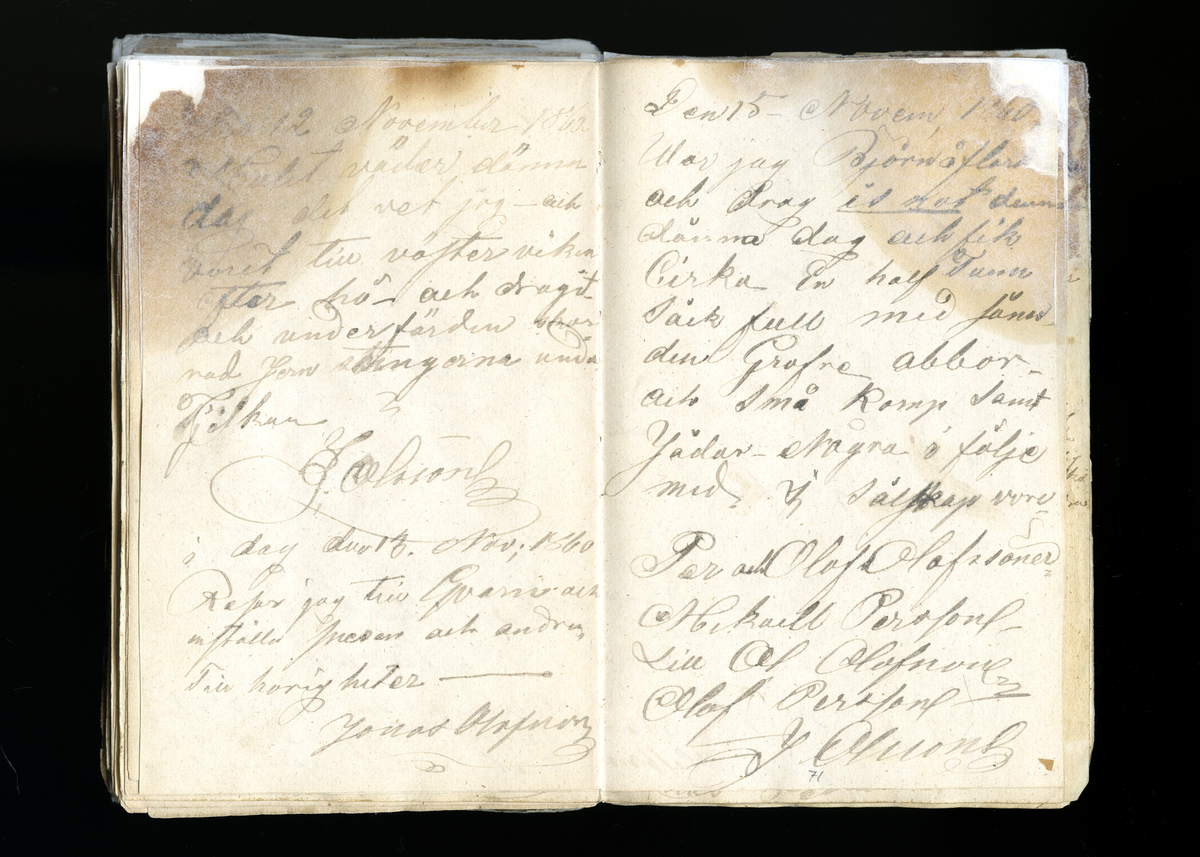 12 November 1860
väder, dänna
dag det vet jag – och
varit till väster viken
efter hö – och dragit
och under färden
rad Jern stängerna unda
Kjélkan
J. Olsson
i dag den 13. Nov; 1860
Reser jag till Qvarn och
inställa och andra
Till horigheter ———
Jonas Olofsson
Den 15 – Novem, 1860
War jag Björnåflore
och drog is not denna
dänna dag och fik
Cirka En half Tunn
säck full med
den Grofre abbor –
och små Komp samt
Jädar – Några i følje
med, sälskap vore
Per och Olof Olofssöner
Mikaell Persson
Lill Ol Olofsson
Olof Persson
J Olsson
71